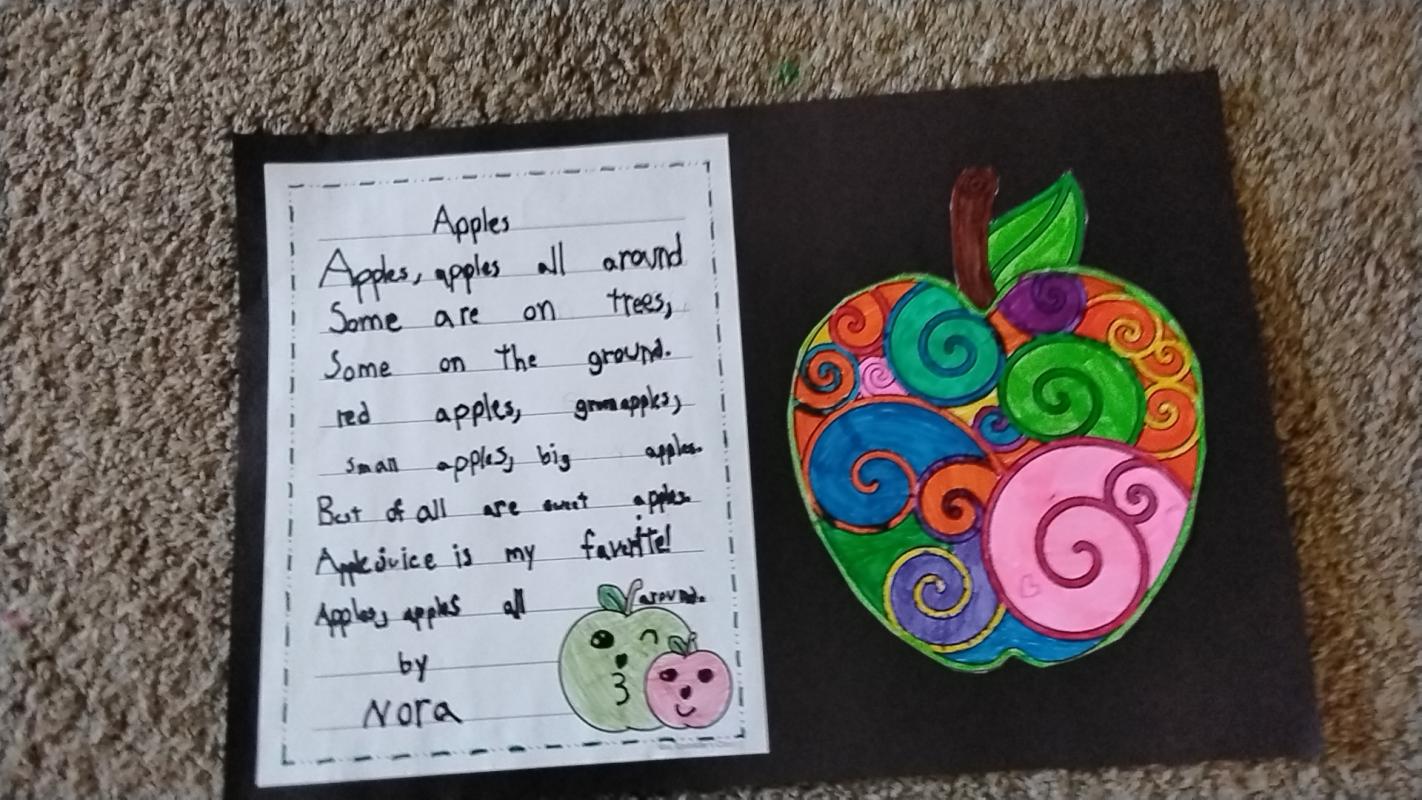 Apples
Apples, apples all around
Some are on trees,
Some on the ground.
red apples, green apples,
small apples, big apples.
Best of all are sweet apples.
Apple juice is my favorite!
Apples, apples all around.
by
Nora